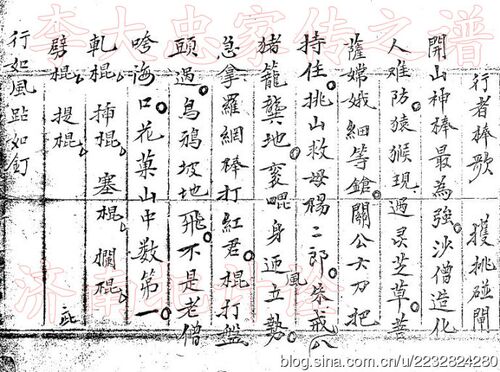 李大忠家传之谱
行者棒歌 挑碰閘
開山神棒最為強沙僧造化
人难防猿猴現過灵芝草菩
薩嫦娥細等鎗關公大刀把
持住。挑山救母楊二郎。戒八
風
猪籠地身立勢
急拿羅網棒打紅君。棍打盤
頭過。烏鴉坡地飛。不是老僧
誇海口。花菓山中数第一。
乹棍。挿棍。塞棍。欄棍。
劈棍。提棍。
行如風跕如釘
济南
blog.sina.com.cn/u/2232824280